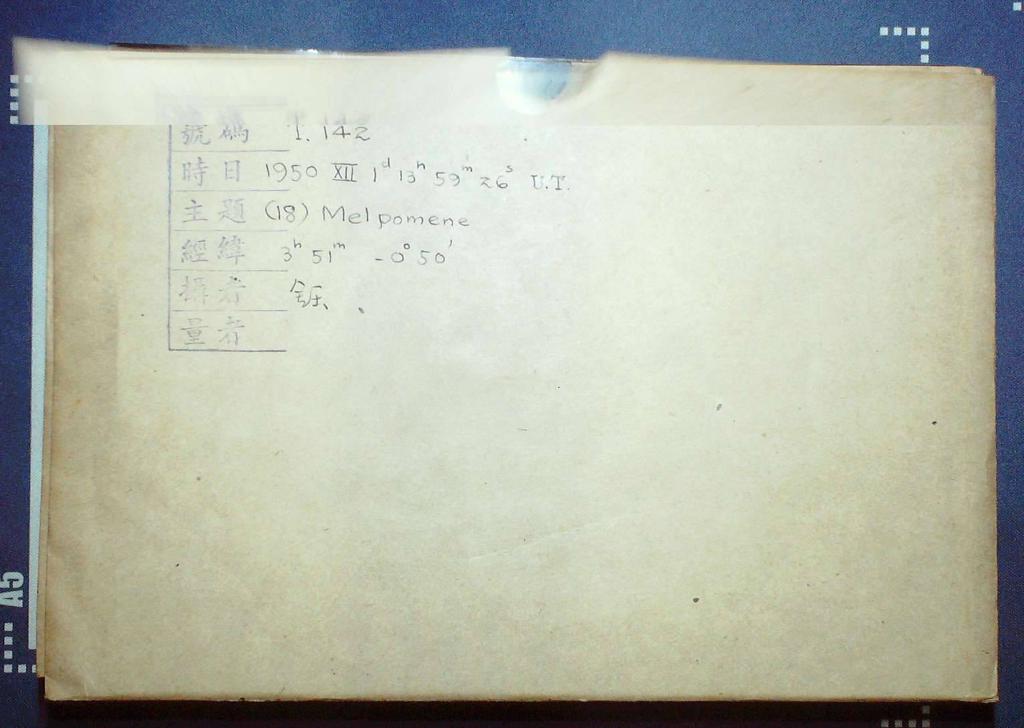 號碼 I. 142
時日 1950 XII 1ᵈ 13ʰ 59ᵐ 26ˢ U.T.
主題 (18) Melpomene
經緯 3ʰ 51ᵐ -0° 50'
攝者
量者
A5